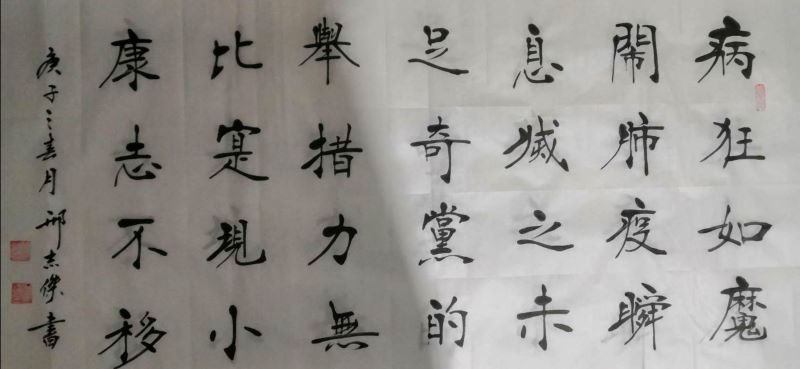 病狂如魔
鬧肺疫瞬
息滅之未
足奇黨的
舉措力無
比寔現小
康志不移
庚子之春月邢志傑書